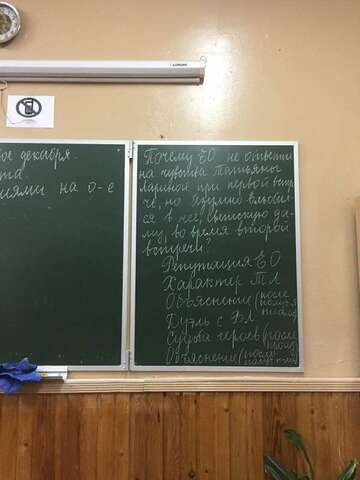 LUMIEN
ое декабря.
та
иями на о-е
Почему ЕО не ответил
на чувства Татьяны
Лариной при первой встре
че, но безумно влюбил
ся в неё, светскую да-
му, во время второй
встречи?
Репутация ЕО
Характер ТЛ
Объяснение (после
получения
письма)
Дуэль с ВЛ
Судьба героев (после
дуэли)
Объяснение (после